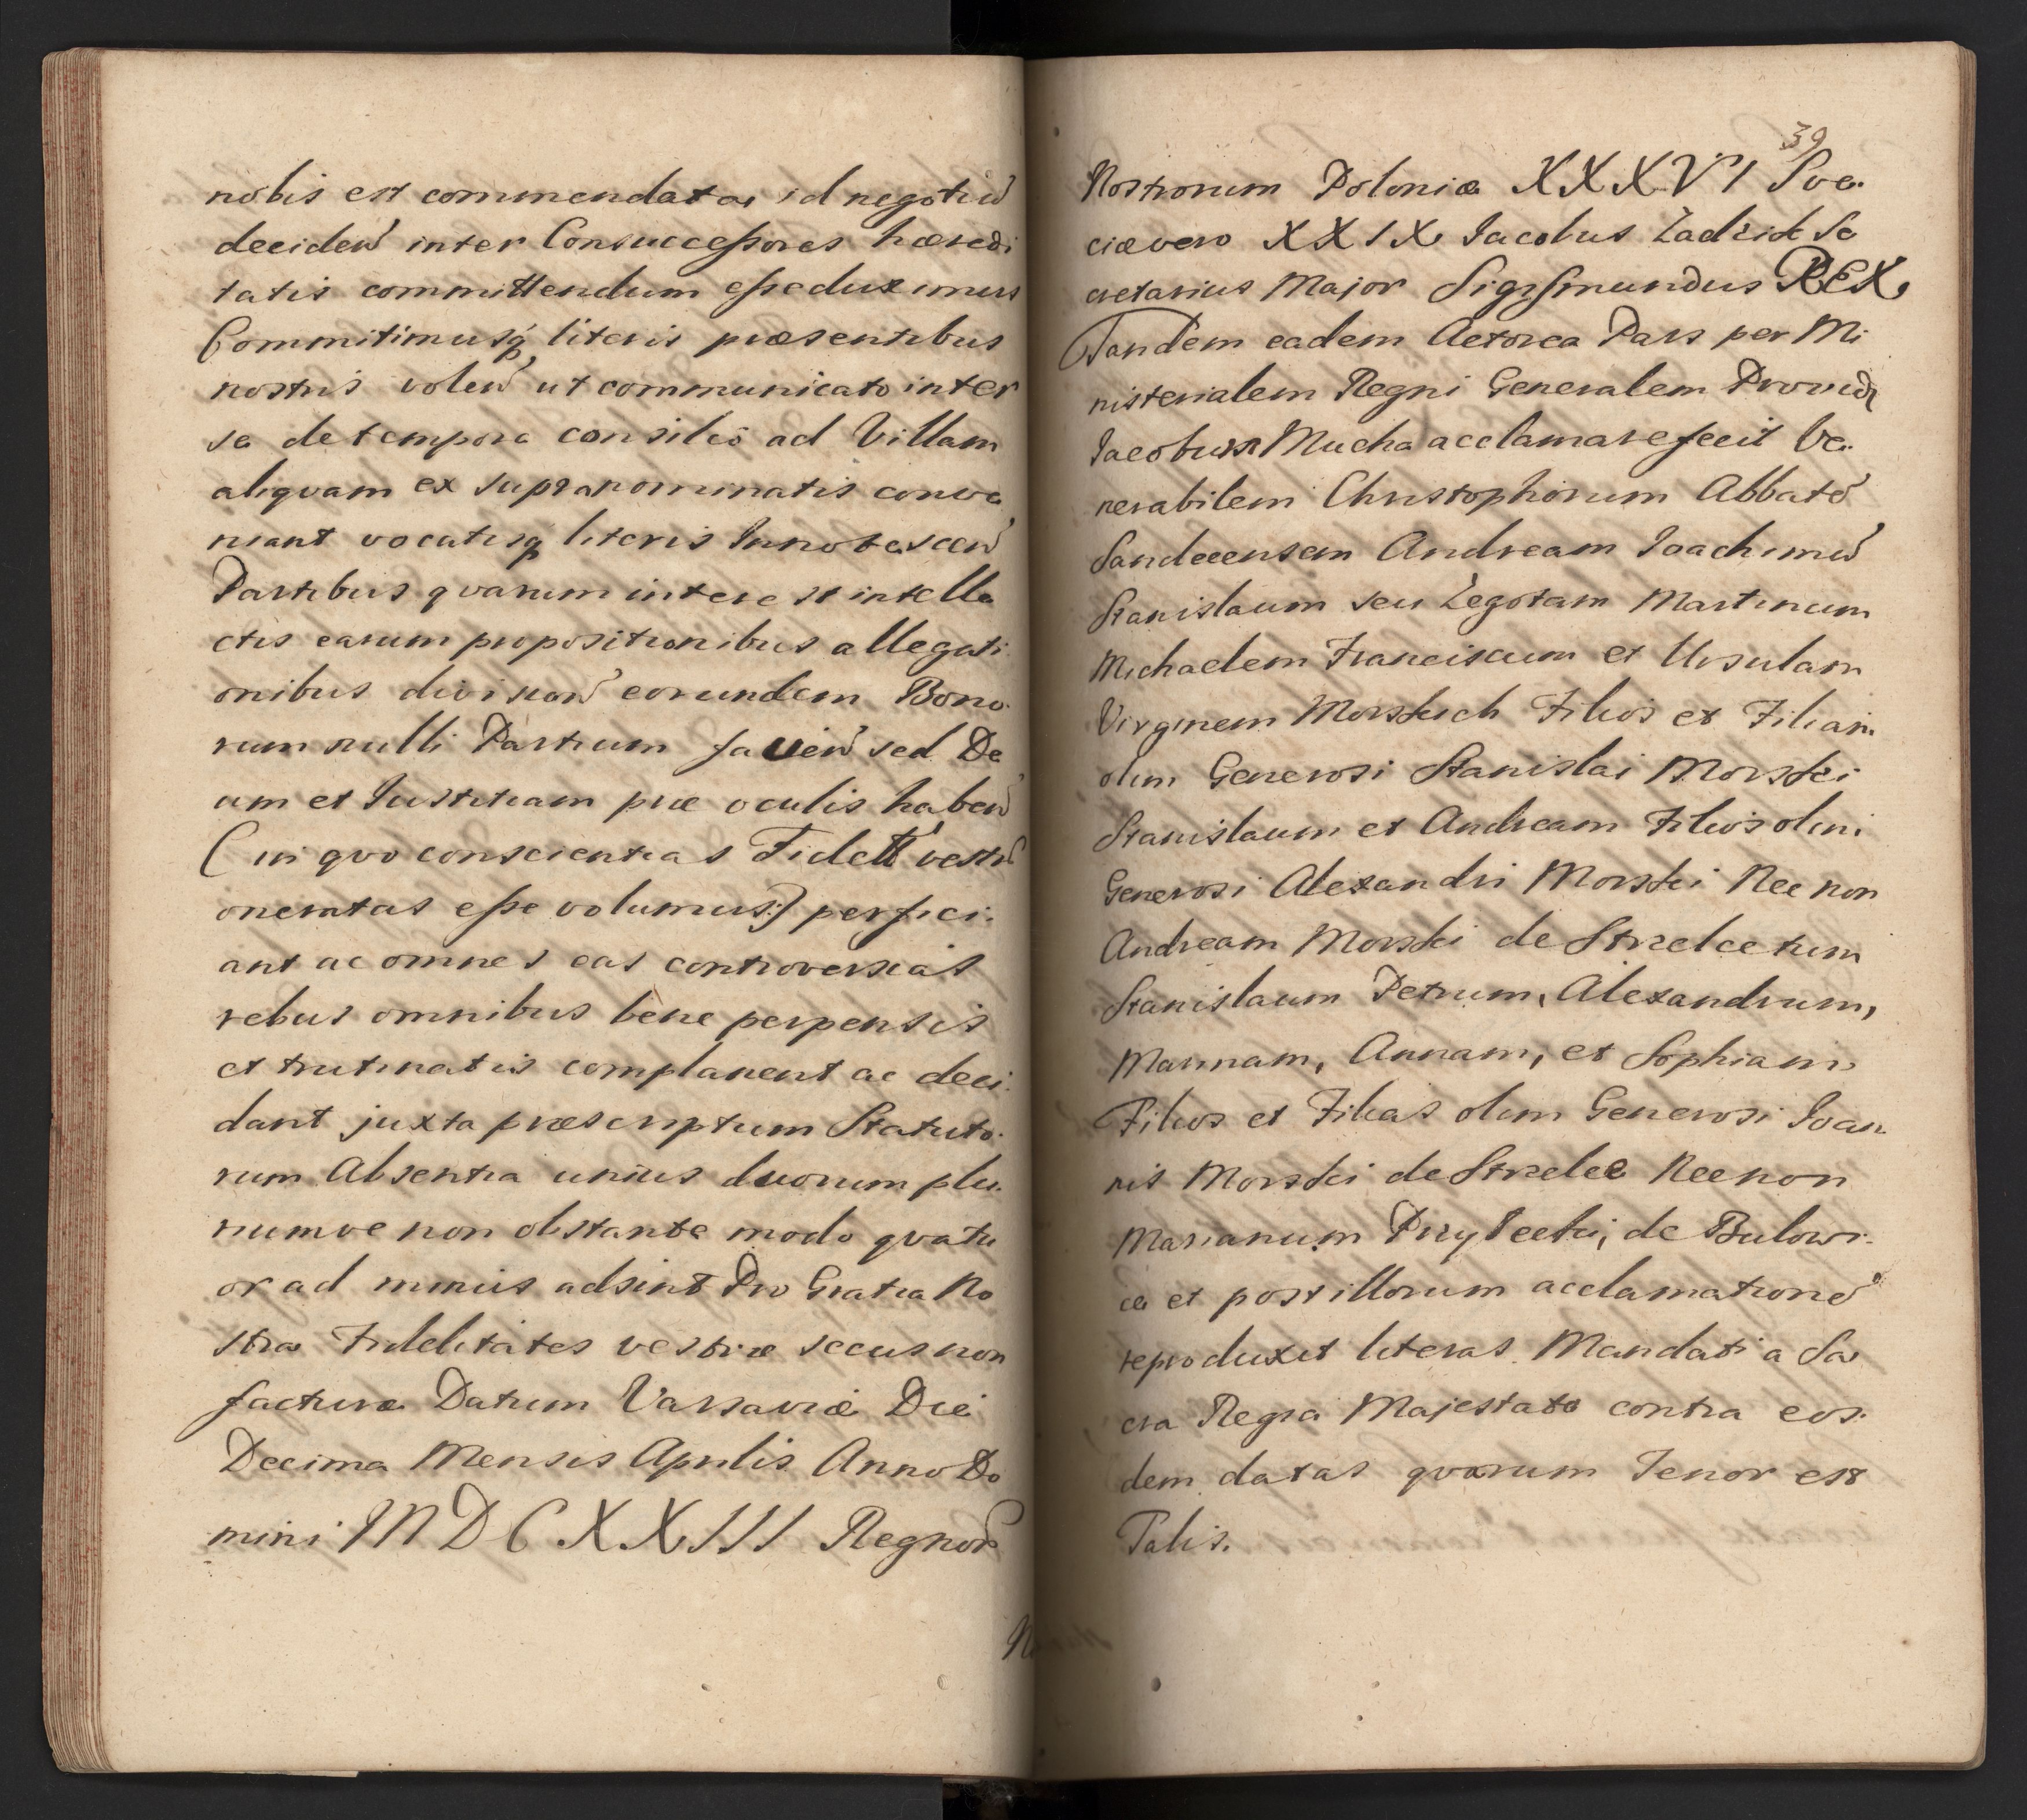 nobis est commendata id negotiū
deciden̄ inter Consuccessores hæredi
tatis committendum esse duximus
Commitimusq́ literis præsentibus
nostris volen̄ ut communicato inter
se de tempore consilio ad Villam
aliqvam ex supranominatis conve
niant vocatisq literis Innotescen̄
Partibus qvarum interest intelle
ctis earum propositionibus allegati
onibus divisionē eorundem Bono
rum nulli Partium faven̄ sed De
um et Justitiam præ oculis haben̄
(in qvo conscientias Fidelt vestrū
oneratas esse volumus:) perfici.
ant ac omnes eas controversias
rebus omnibus bene perpensis
et trutinatis complanent ac deci.
dant juxta præscriptum Statuto.
rum Absentia unius duorum plu.
riumve non obstante modo qvatu
or ad minus adsint Pro Gratia No
stra Fidelitates vestræ secus non
facturæ Datum Varsaviæ Die
Decima Mensis Aprilis Anno Do
mini MDCXXIII Regnor̄
39
Nostrorum Poloniæ XXXVI Sve.
ciæ vero XXIX Iacobus Zadzik Se
cretarius Major Sigismundus REX
Tandem eadem Actorea Pars per Mi
nisterialem Regni Generalem Provid
Iacobum Mucha acclamare fecit Ve.
nerabilem Christophorum Abbatē
Sandecensem Andream Ioachimū
Stanislaum seu Zegotam Martinum
Michaelem Franciscum et Ursulam
Virginem Morskich Filios et Filiam
olim Generosi Stanislai Morski
Stanislaum et Andream Filios olim
Generosi Alexandri Morski Nec non
Andream Morski de Strzelce tum
Stanislaum Petrum, Alexandrum,
Marinam, Annam, et Sophiam
Filios et Filias olim Generosi Ioan
nis Morski de Strzelce Nec non
Marianum Przyłecki, de Bulowi.
ce et post illorum acclamationē
reproduxit literas Mandati a Sa
cra Regia Majestate contra eos.
dem datas qvarum Tenor est
Talis.